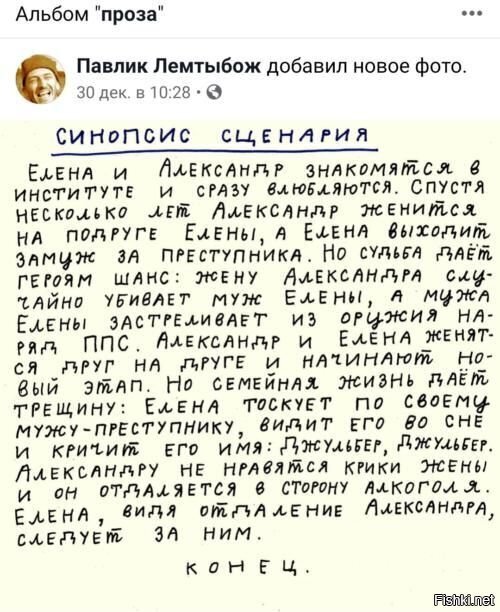 Альбом "проза"
Павлик Лемтыбож добавил новое фото.
30 дек. в 10:28 ·
СИНОПСИС СЦЕНАРИЯ
ЕЛЕНА И АЛЕКСАНДР ЗНАКОМЯТСЯ В
ИНСТИТУТЕ И СРАЗУ ВЛЮБЛЯЮТСЯ. СПУСТЯ
НЕСКОЛЬКО ЛЕТ АЛЕКСАНДР ЖЕНИТСЯ
НА ПОДРУГЕ ЕЛЕНЫ, А ЕЛЕНА ВЫХОДИТ
ЗАМУЖ ЗА ПРЕСТУПНИКА. НО СУДЬБА ДАЁТ
ГЕРОЯМ ШАНС: ЖЕНУ АЛЕКСАНДРА СЛУ-
ЧАЙНО УБИВАЕТ МУЖ ЕЛЕНЫ, А МУЖА
ЕЛЕНЫ ЗАСТРЕЛИВАЕТ ИЗ ОРУЖИЯ НА-
РЯД ППС. АЛЕКСАНДР И ЕЛЕНА ЖЕНЯТ-
СЯ ДРУГ НА ДРУГЕ И НАЧИНАЮТ НО-
ВЫЙ ЭТАП. НО СЕМЕЙНАЯ ЖИЗНЬ ДАЁТ
ТРЕЩИНУ: ЕЛЕНА ТОСКУЕТ ПО СВОЕМУ
МУЖУ-ПРЕСТУПНИКУ, ВИДИТ ЕГО ВО СНЕ
И КРИЧИТ ЕГО ИМЯ: ДЖУЛЬБЕР, ДЖУЛЬБЕР.
АЛЕКСАНДРУ НЕ НРАВЯТСЯ КРИКИ ЖЕНЫ
И ОН ОТДАЛЯЕТСЯ В СТОРОНУ АЛКОГОЛЯ.
ЕЛЕНА, ВИДЯ ОТДАЛЕНИЕ АЛЕКСАНДРА,
СЛЕДУЕТ ЗА НИМ.
КОНЕЦ.
Fishki.net